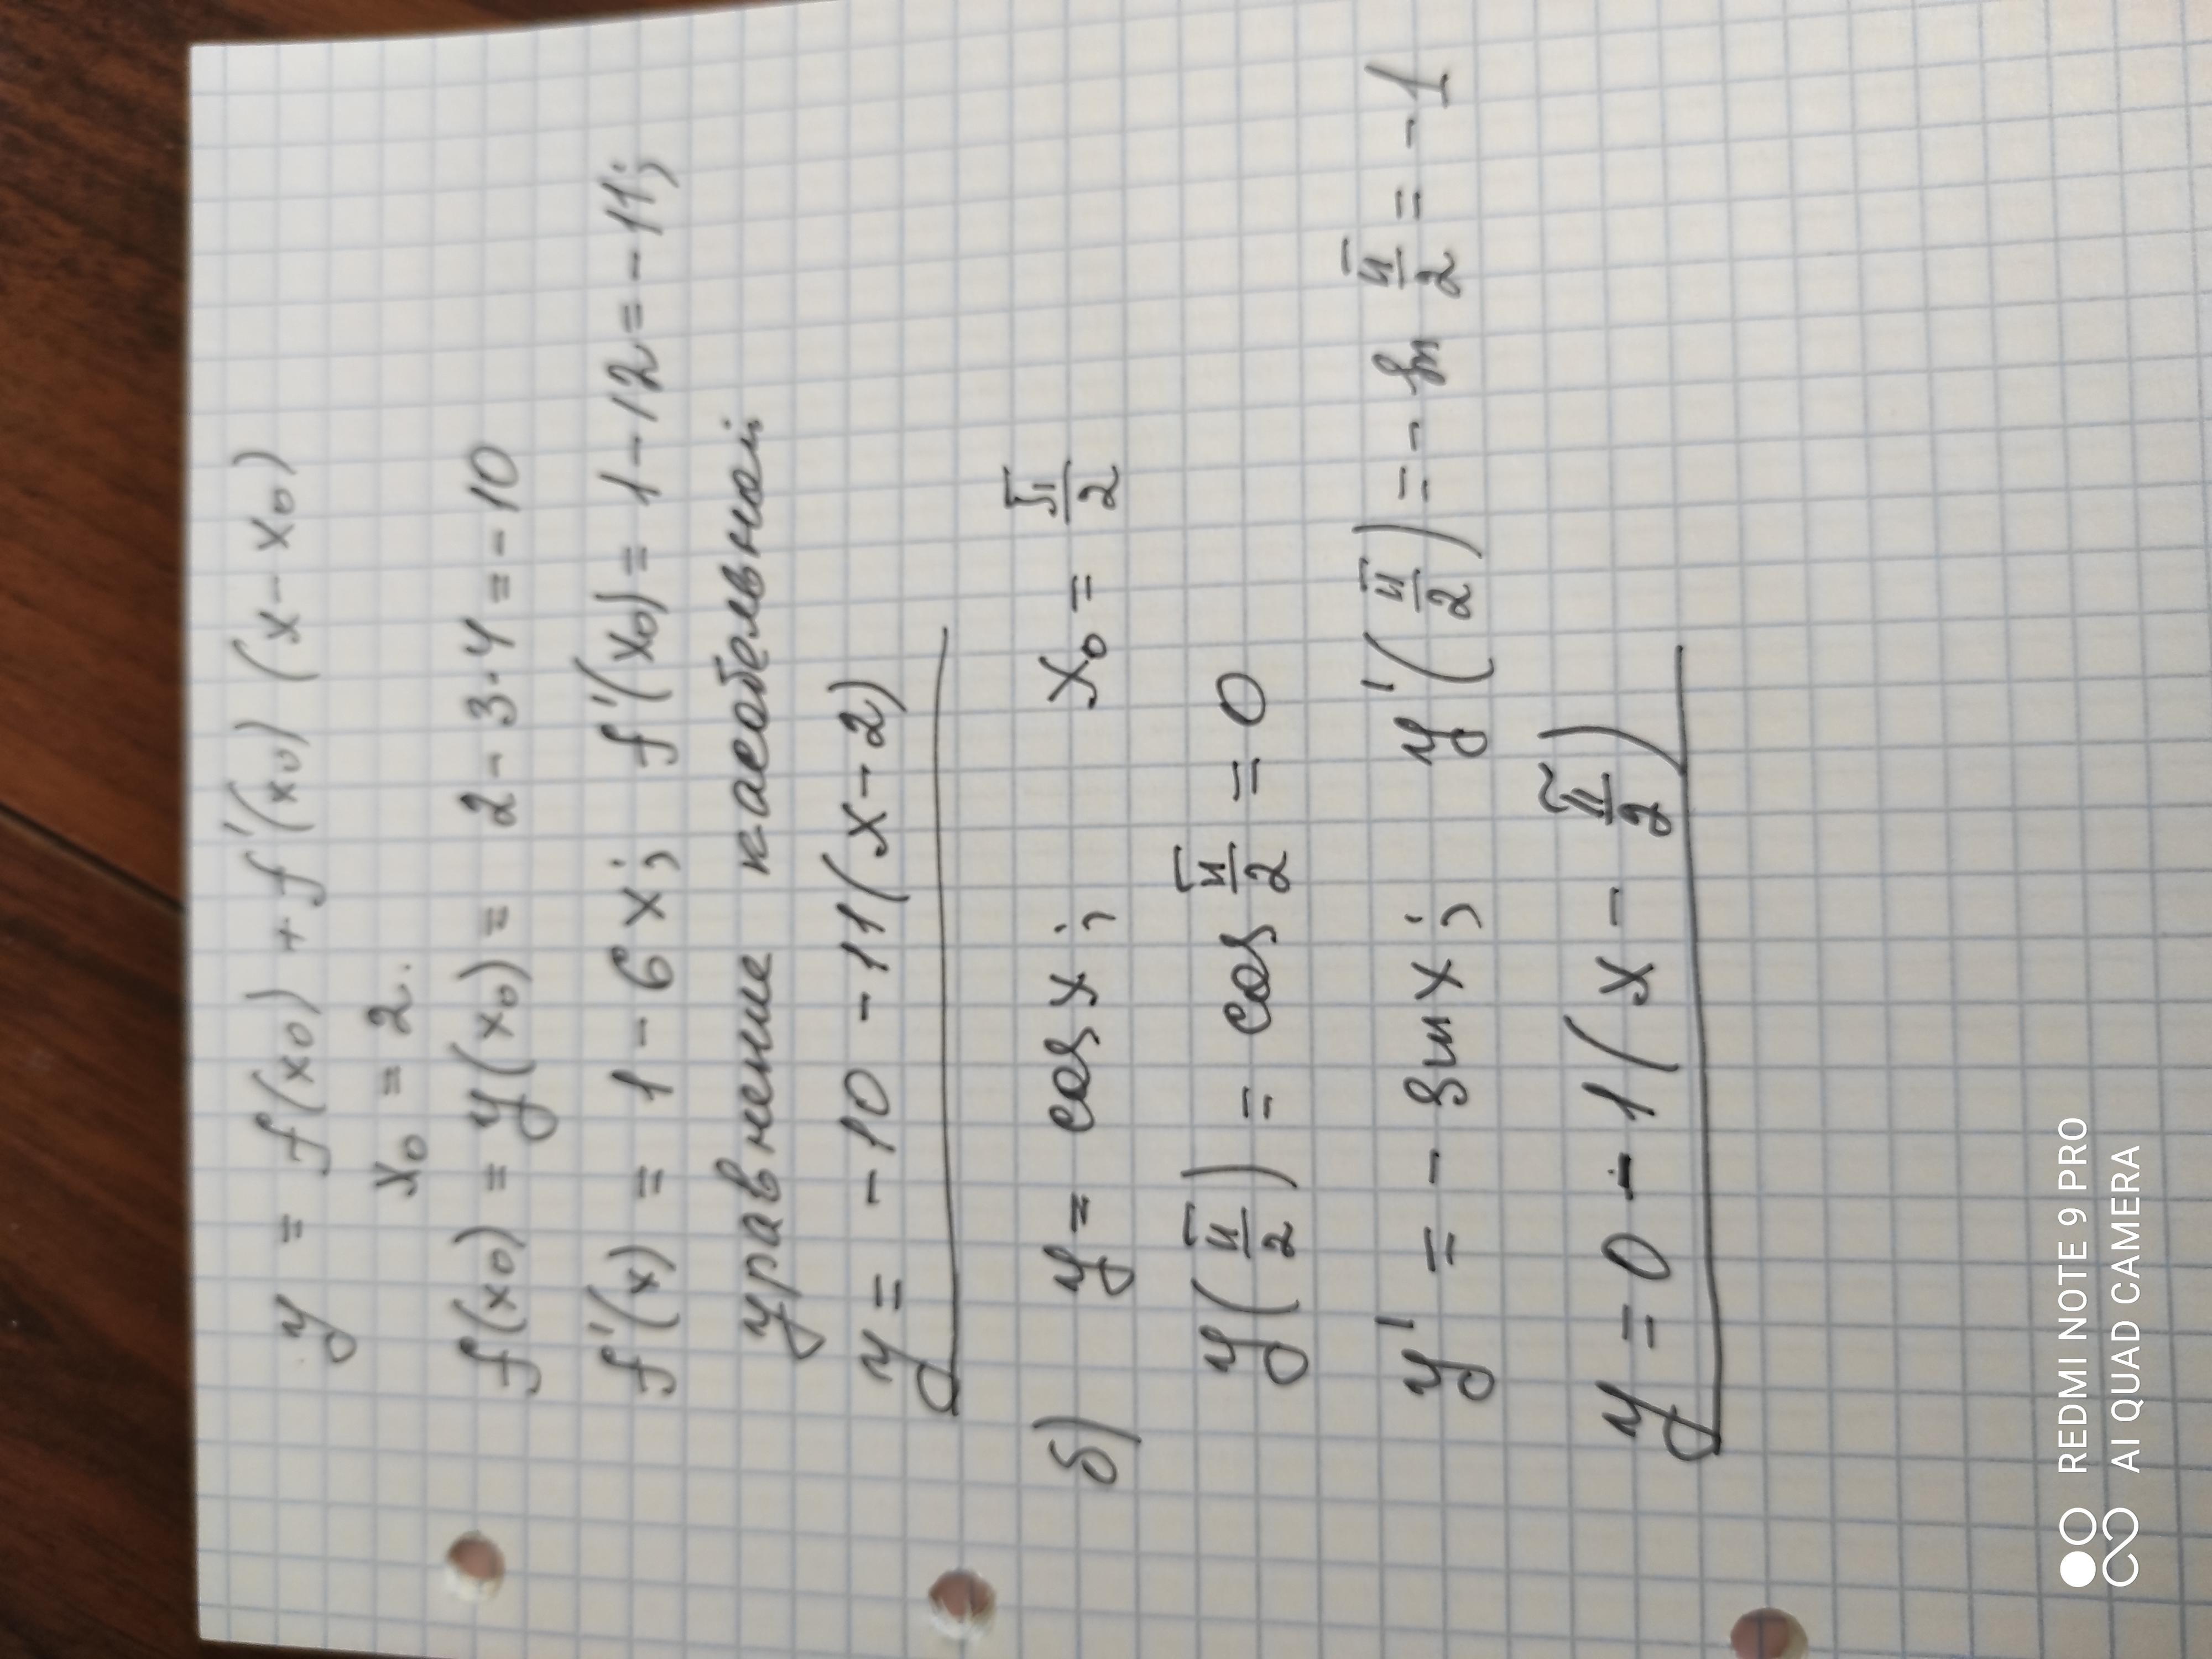 y = f(x₀) + f'(x₀) (x - x₀)
x₀ = 2.
f(x₀) = y(x₀) = 2 - 3·4 = -10
f'(x) = 1 - 6x; f'(x₀) = 1 - 12 = -11;
уравнение касательной
y = -10 - 11(x - 2)
б) y = cos x; x₀ = π/2
y(π/2) = cos π/2 = 0
y' = - sin x; y'(π/2) = - sin π/2 = -1
y = 0 - 1(x - π/2)
REDMI NOTE 9 PRO
AI QUAD CAMERA